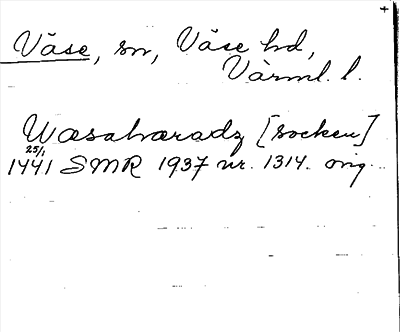 Väse, sn, Väse hd,
Värml. l.
Wæsahæradz [socken]
25/1
1441 SMR 1937 nr. 1314. orig.